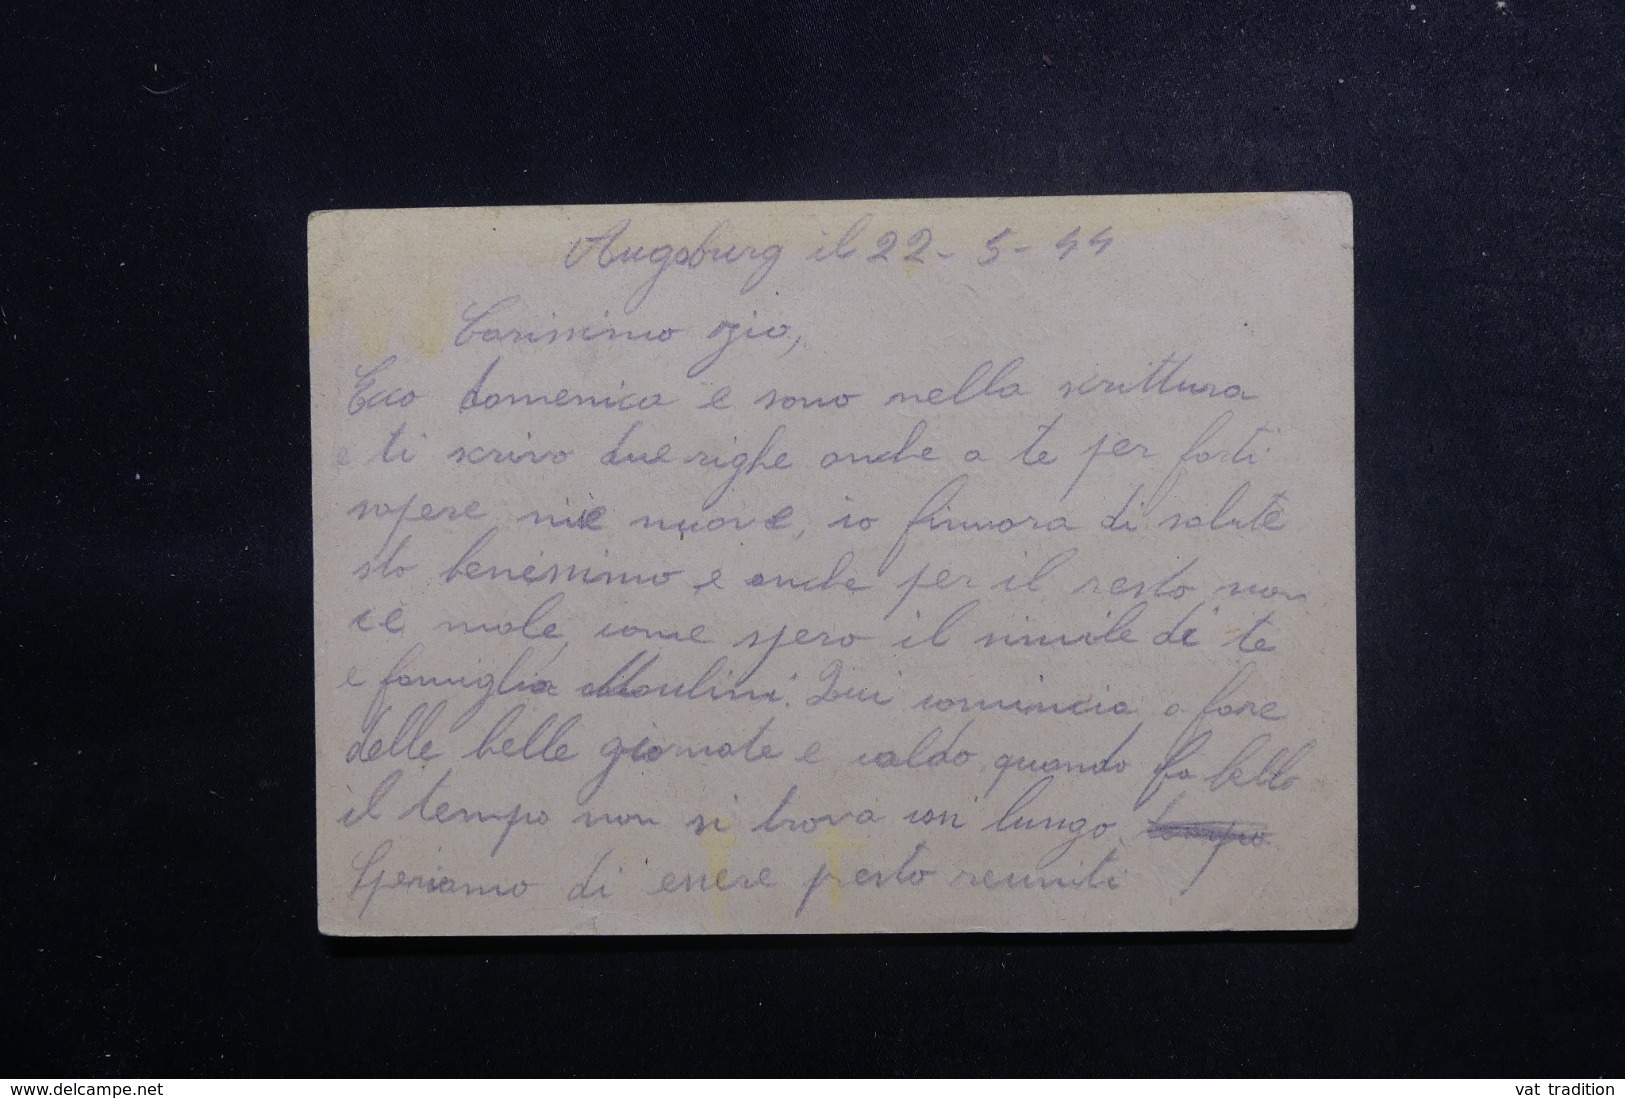 Augsburg il 22-5-44
Carissimo zio,
Ecco domenica e sono nella scrittura
e ti scrivo due righe anche a te per farti
sapere mie nuove, io finnora di salute
sto benissimo e anche per il resto non
cè male, come spero il simile di te
e famiglia Moulini. Qui comincia a fare
delle belle giornate e caldo, quando fa bello
il tempo non si trova cosi lungo tempo
Speriamo di essere presto reuniti
www.delcampe.net
vat tradition